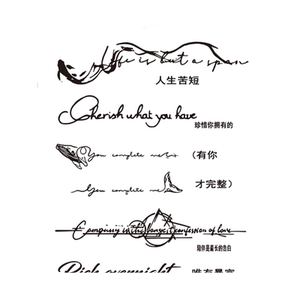 Life is but a span
人生苦短
Cherish what you have
珍惜你拥有的
You complete me
(有你
You complete me
才完整)
Company is the longest confession of love
陪伴是最长的告白
Rich overnight
唯有暴富